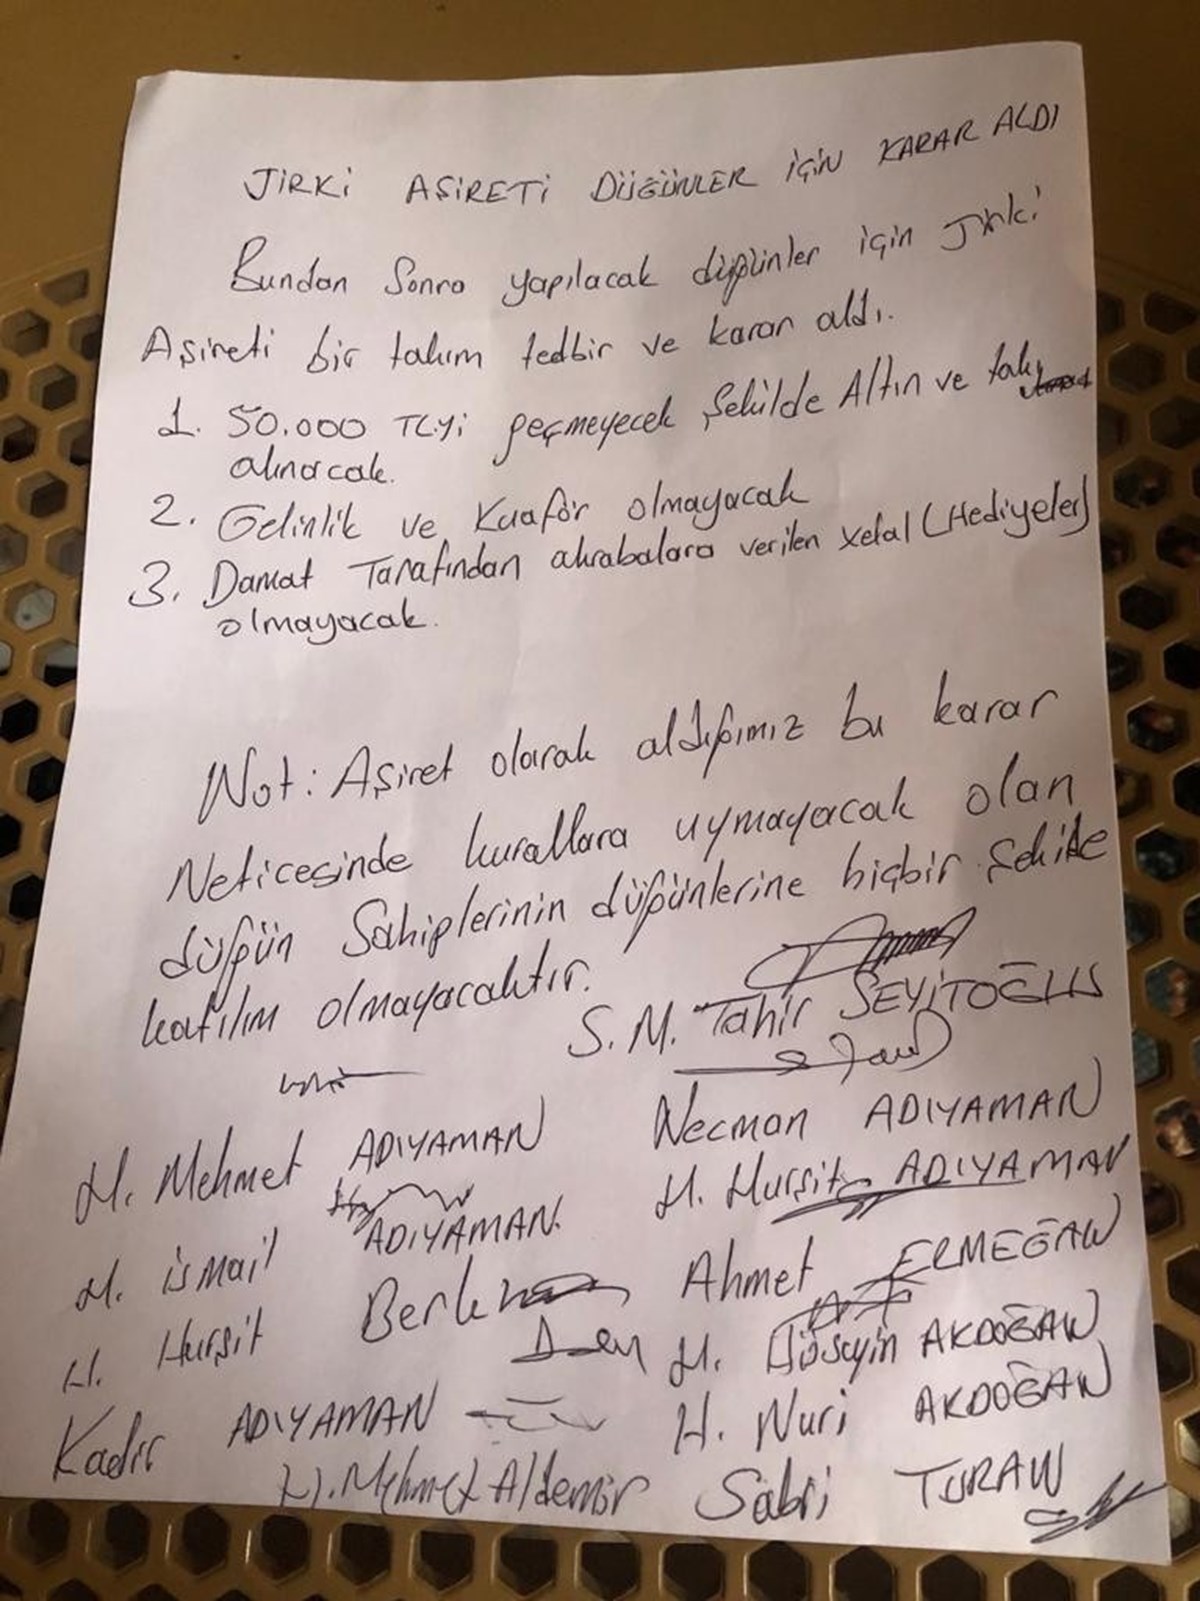 JİRKİ AŞİRETİ DÜĞÜNLER İÇİN KARAR ALDI
Bundan Sonra yapılacak düğünler için Jirki
Aşireti bir takım tedbir ve karar aldı.
1. 50.000 TL'yi geçmeyecek Şekilde Altın ve takı
alınacak.
2. Gelinlik ve Kuaför olmayacak
3. Damat Tarafından akrabalara verilen xelat (Hediyeler)
olmayacak.
Not: Aşiret olarak aldığımız bu karar
Neticesinde kurallara uymayacak olan
düğün Sahiplerinin düğünlerine hiçbir Şekilde
katılım olmayacaktır.
S. M. Tahir SEYİTOĞLU
H. Mehmet ADIYAMAN Necman ADIYAMAN
H. İsmail ADIYAMAN. H. Hurşit ADIYAMAN
H. Hurşit Ahmet ERMEĞAN
H. Hüseyin AKDOĞAN
Kadir ADIYAMAN H. Nuri AKDOĞAN
H. Mehmet Aldemir Sabri TURAN